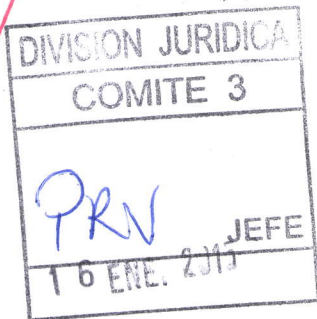 DIVISION JURIDICA
COMITE 3
PRV
JEFE
16 ENE. 2015